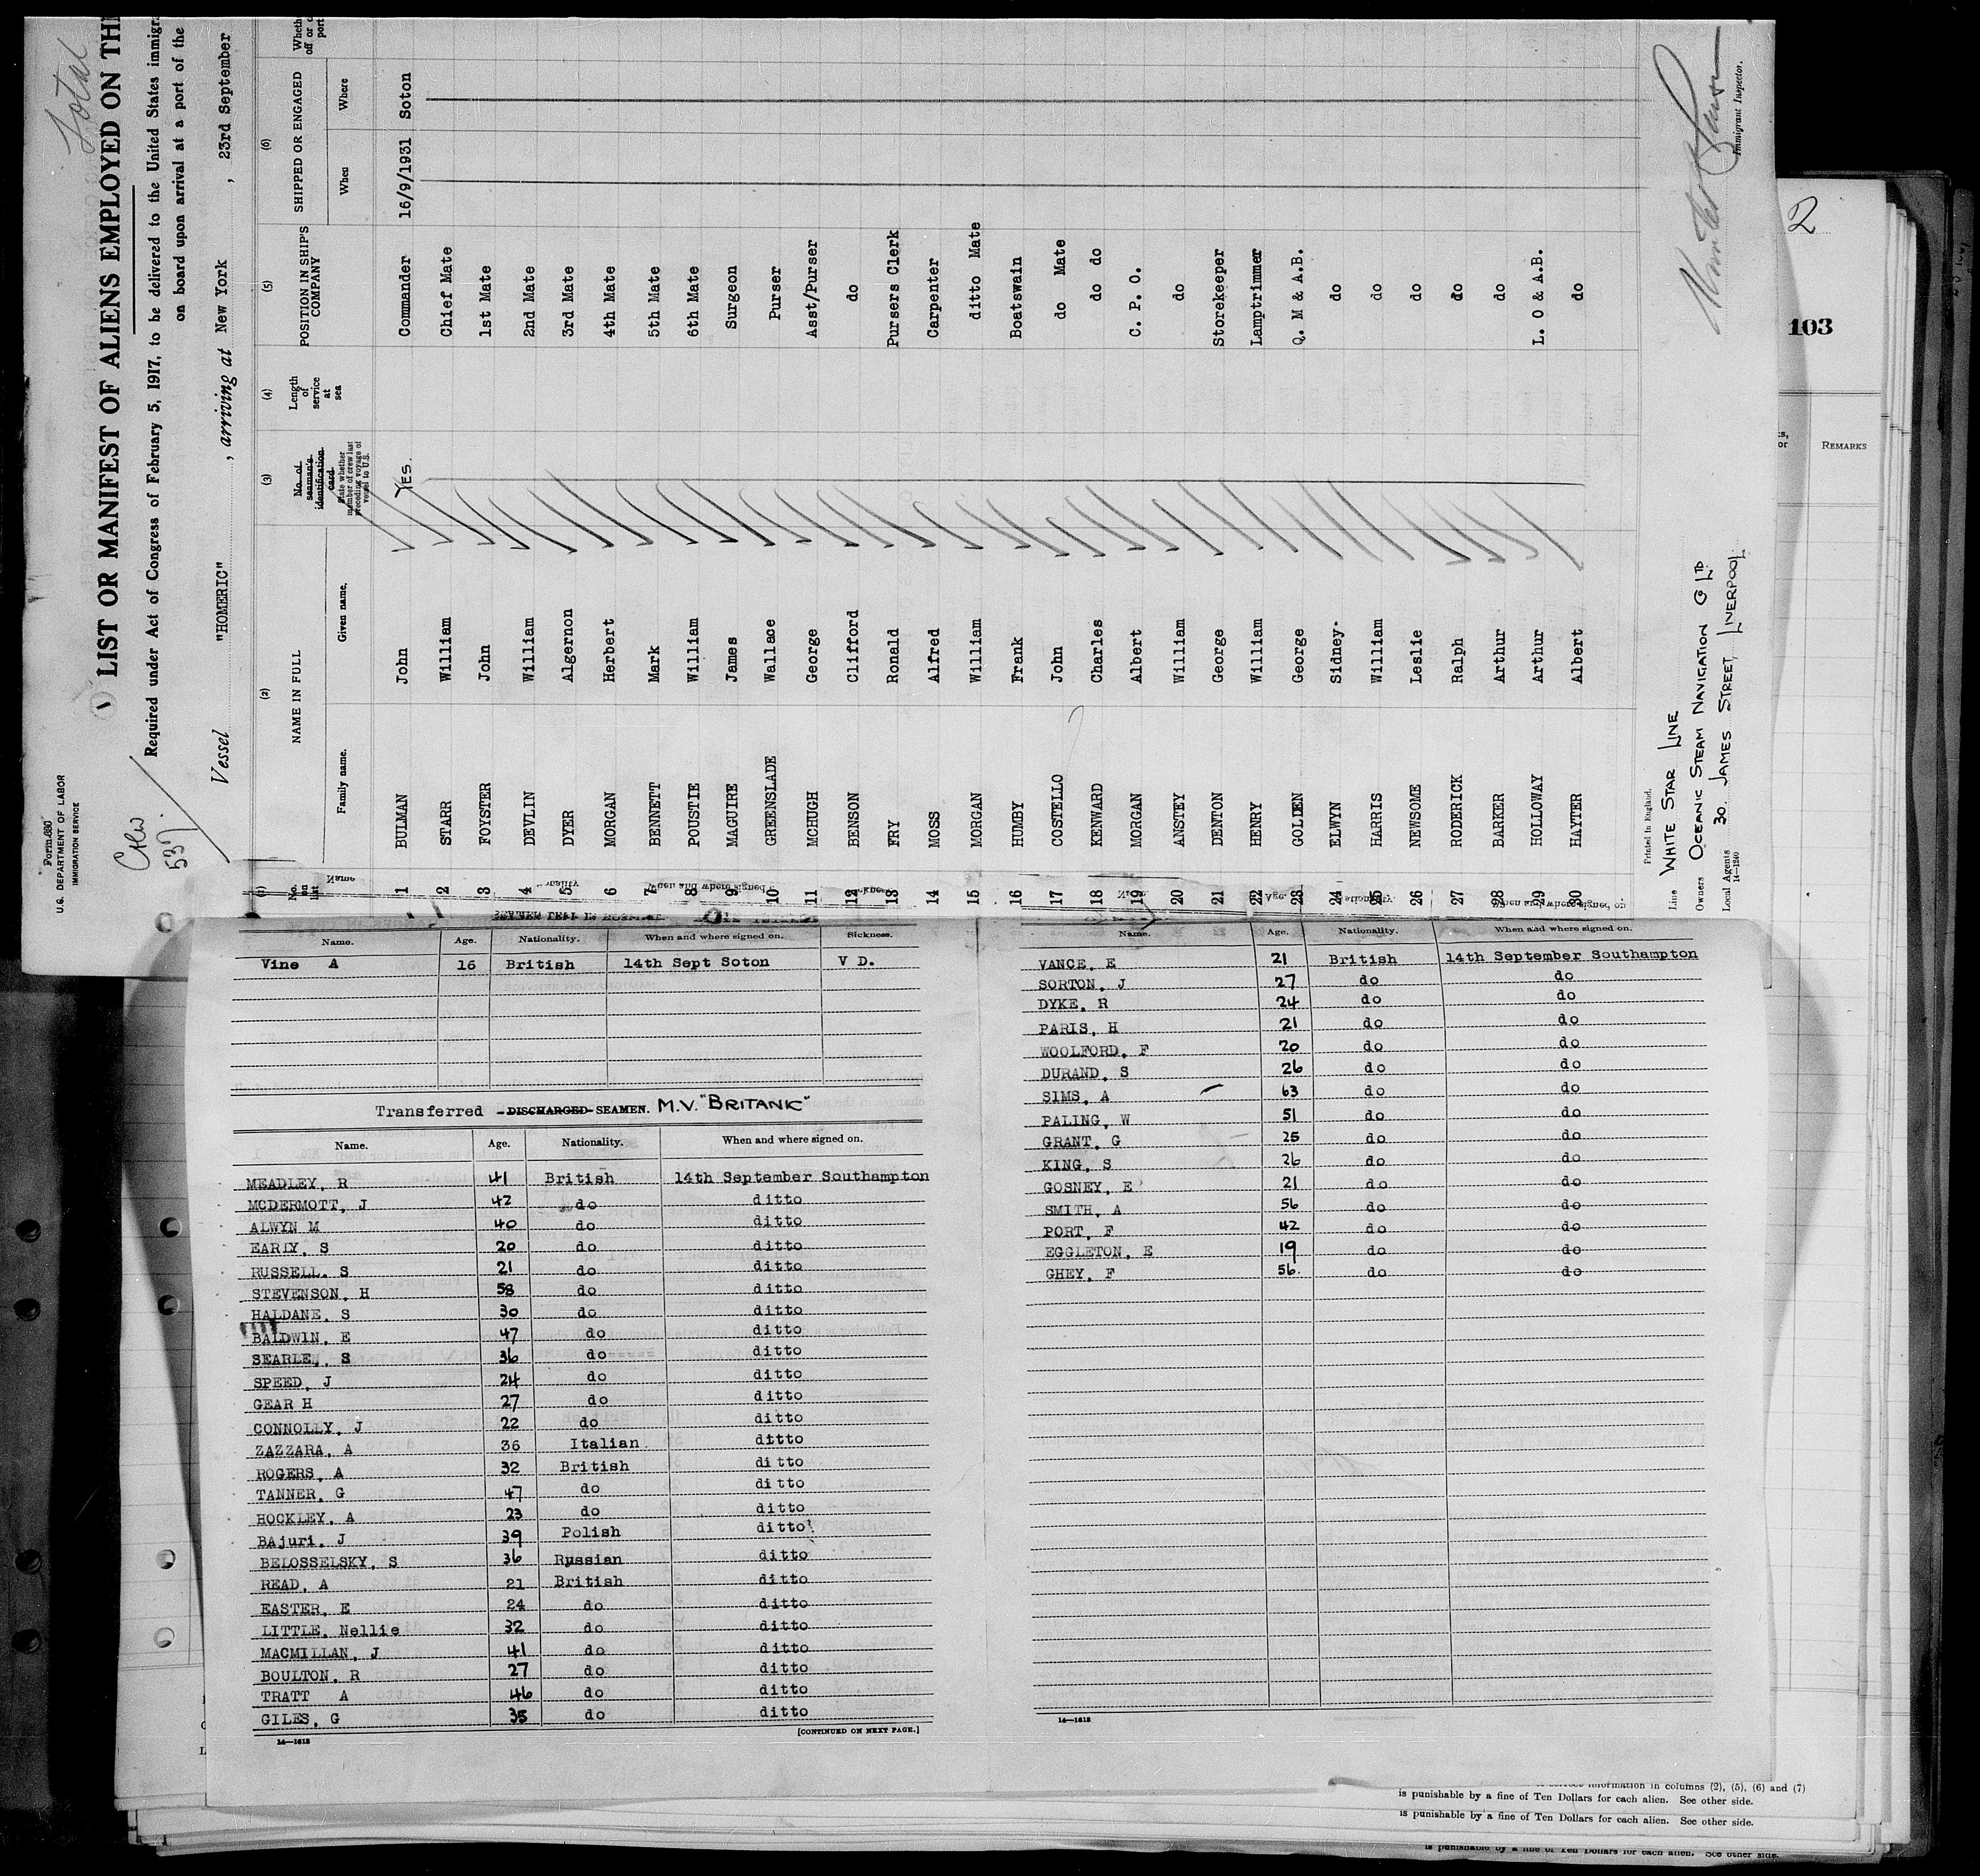 Total
Form 680
U.S. DEPARTMENT OF LABOR
IMMIGRATION SERVICE
1 LIST OR MANIFEST OF ALIENS EMPLOYED ON THE
Required under Act of Congress of February 5, 1917, to be delivered to the United States immigra
on board upon arrival at a port of the
537
Vessel "HOMERIC", arriving at New York, 23rd September
(1) (2) (3) (4) (5) (6)
No. on list NAME IN FULL No. of seaman's identification card Length of service at sea POSITION IN SHIP'S COMPANY SHIPPED OR ENGAGED
State whether member of crew last preceding voyage of vessel to U.S.
Family name. Given name. When Where
1 BULMAN John Yes. Commander 16/9/1931 Soton
2 STARR William Chief Mate
3 FOYSTER John 1st Mate
4 DEVLIN William 2nd Mate
5 DYER Algernon 3rd Mate
6 MORGAN Herbert 4th Mate
7 BENNETT Mark 5th Mate
8 POUSTIE William 6th Mate
9 MAGUIRE James Surgeon
10 GREENSLADE Wallace Purser
11 MCHUGH George Asst/Purser
12 BENSON Clifford do
13 FRY Ronald Pursers Clerk
14 MOSS Alfred Carpenter
15 MORGAN William ditto Mate
16 HUMBY Frank Boatswain
17 COSTELLO John do Mate
18 KENWARD Charles do do
19 MORGAN Albert C. P. O.
20 ANSTEY William do
21 DENTON George Storekeeper
22 HENRY William Lamptrimmer
23 GOLDEN George Q. M & A.B.
24 ELWYN Sidney. do
25 HARRIS William do
26 NEWSOME Leslie do
27 RODERICK Ralph do
28 BARKER Arthur do
29 HOLLOWAY Arthur L. O & A.B.
30 HAYTER Albert do
Printed in England.
Line WHITE STAR LINE
Owners OCEANIC STEAM NAVIGATION Co LTD
Local Agents 30 JAMES STREET, LIVERPOOL
14-1240
Immigrant Inspector.
2
103
REMARKS
Name. Age. Nationality. When and where signed on. Sickness.
Vine A 16 British 14th Sept Soton V D.
Transferred DISCHARGED SEAMEN. M.V. "BRITANIC"
Name. Age. Nationality. When and where signed on.
MEADLEY, R 41 British 14th September Southampton
MCDERMOTT, J 42 do ditto
ALWYN M 40 do ditto
EARLY, S 20 do ditto
RUSSELL. S 21 do ditto
STEVENSON, H 58 do ditto
HALDANE. S 30 do ditto
BALDWIN. E 47 do ditto
SEARLE, S 36 do ditto
SPEED, J 24 do ditto
GEAR H 27 do ditto
CONNOLLY, J 22 do ditto
ZAZZARA, A 36 Italian ditto
ROGERS, A 32 British ditto
TANNER, G 47 do ditto
HOCKLEY, A 23 do ditto
BAjuri, J 39 Polish ditto
BELOSSELSKY, S 36 Russian ditto
READ, A 21 British ditto
EASTER, E 24 do ditto
LITTLE, Nellie 32 do ditto
MACMILLAN, J 41 do ditto
BOULTON, R 27 do ditto
TRATT A 46 do ditto
GILES, G 35 do ditto
14—1618
[CONTINUED ON NEXT PAGE.]
Name. Age. Nationality. When and where signed on.
VANCE, E 21 British 14th September Southampton
SORTON, J 27 do do
DYKE, R 24 do do
PARIS, H 21 do do
WOOLFORD, F 20 do do
DURAND, S 26 do do
SIMS, A 63 do do
PALING, W 51 do do
GRANT, G 25 do do
KING, S 26 do do
GOSNEY, E 21 do do
SMITH, A 56 do do
PORT, F 42 do do
EGGLETON, E 19 do do
GHEY, F 56 do do
14—1618
information in columns (2), (5), (6) and (7)
is punishable by a fine of Ten Dollars for each alien. See other side.
is punishable by a fine of Ten Dollars for each alien. See other side.
is punishable by a fine of Ten Dollars for each alien. See other side.